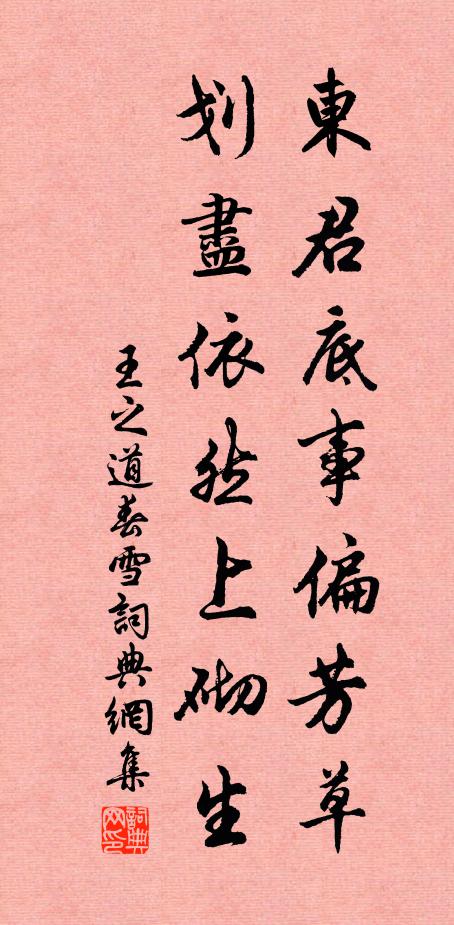 東君底事偏芳草
刬盡依然上砌生
王之道春雪詞典網集
詞典网印